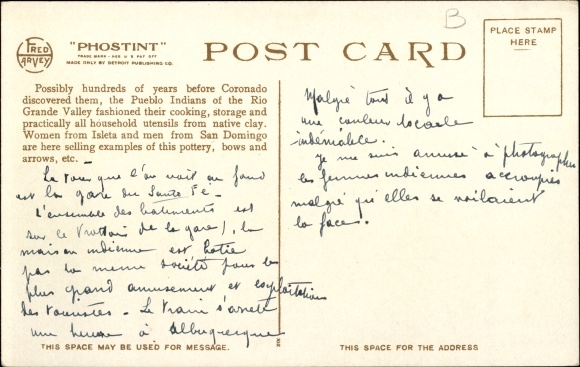 FRED HARVEY
"PHOSTINT"
TRADE MARK - REG U S PAT OFF
MADE ONLY BY DETROIT PUBLISHING CO.
POST CARD
B
PLACE STAMP
HERE
Possibly hundreds of years before Coronado
discovered them, the Pueblo Indians of the Rio
Grande Valley fashioned their cooking, storage and
practically all household utensils from native clay.
Women from Isleta and men from San Domingo
are here selling examples of this pottery, bows and
arrows, etc.
La tour que l'on voit au fond
est la gare du Santa Fé.
L'ensemble des batiments est
sur le trottoir de la gare), la
maison indienne est batie
par la meme société pour le
plus grand amusement et exploitation
des touristes. Le train s'arrete
une heure à Albuquerque
Malgré tout il y a
une couleur locale
indéniable.
Je me suis amusé à photographier
les femmes indiennes accroupies
malgré qu'elles se voilaient
la face.
THIS SPACE MAY BE USED FOR MESSAGE.
THIS SPACE IS FOR THE ADDRESS